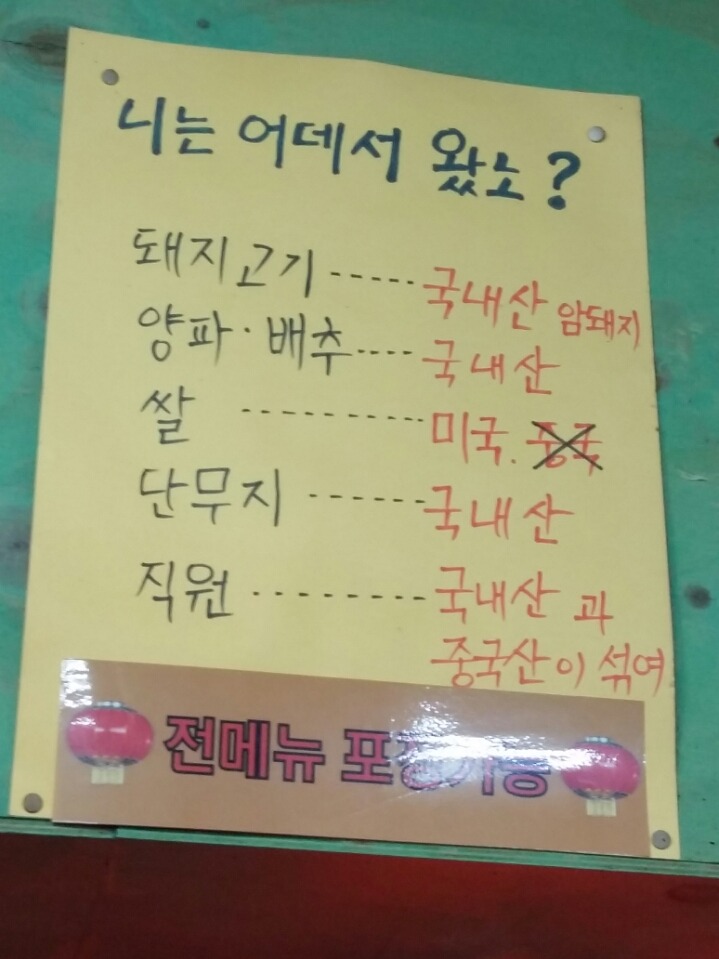 니는 어데서 왔노?
돼지고기 ------ 국내산 암돼지
양파·배추 ---- 국내산
쌀 ----------- 미국. 중국
단무지 ------- 국내산
직원 --------- 국내산 과
중국산이 섞여
전메뉴 포장가능